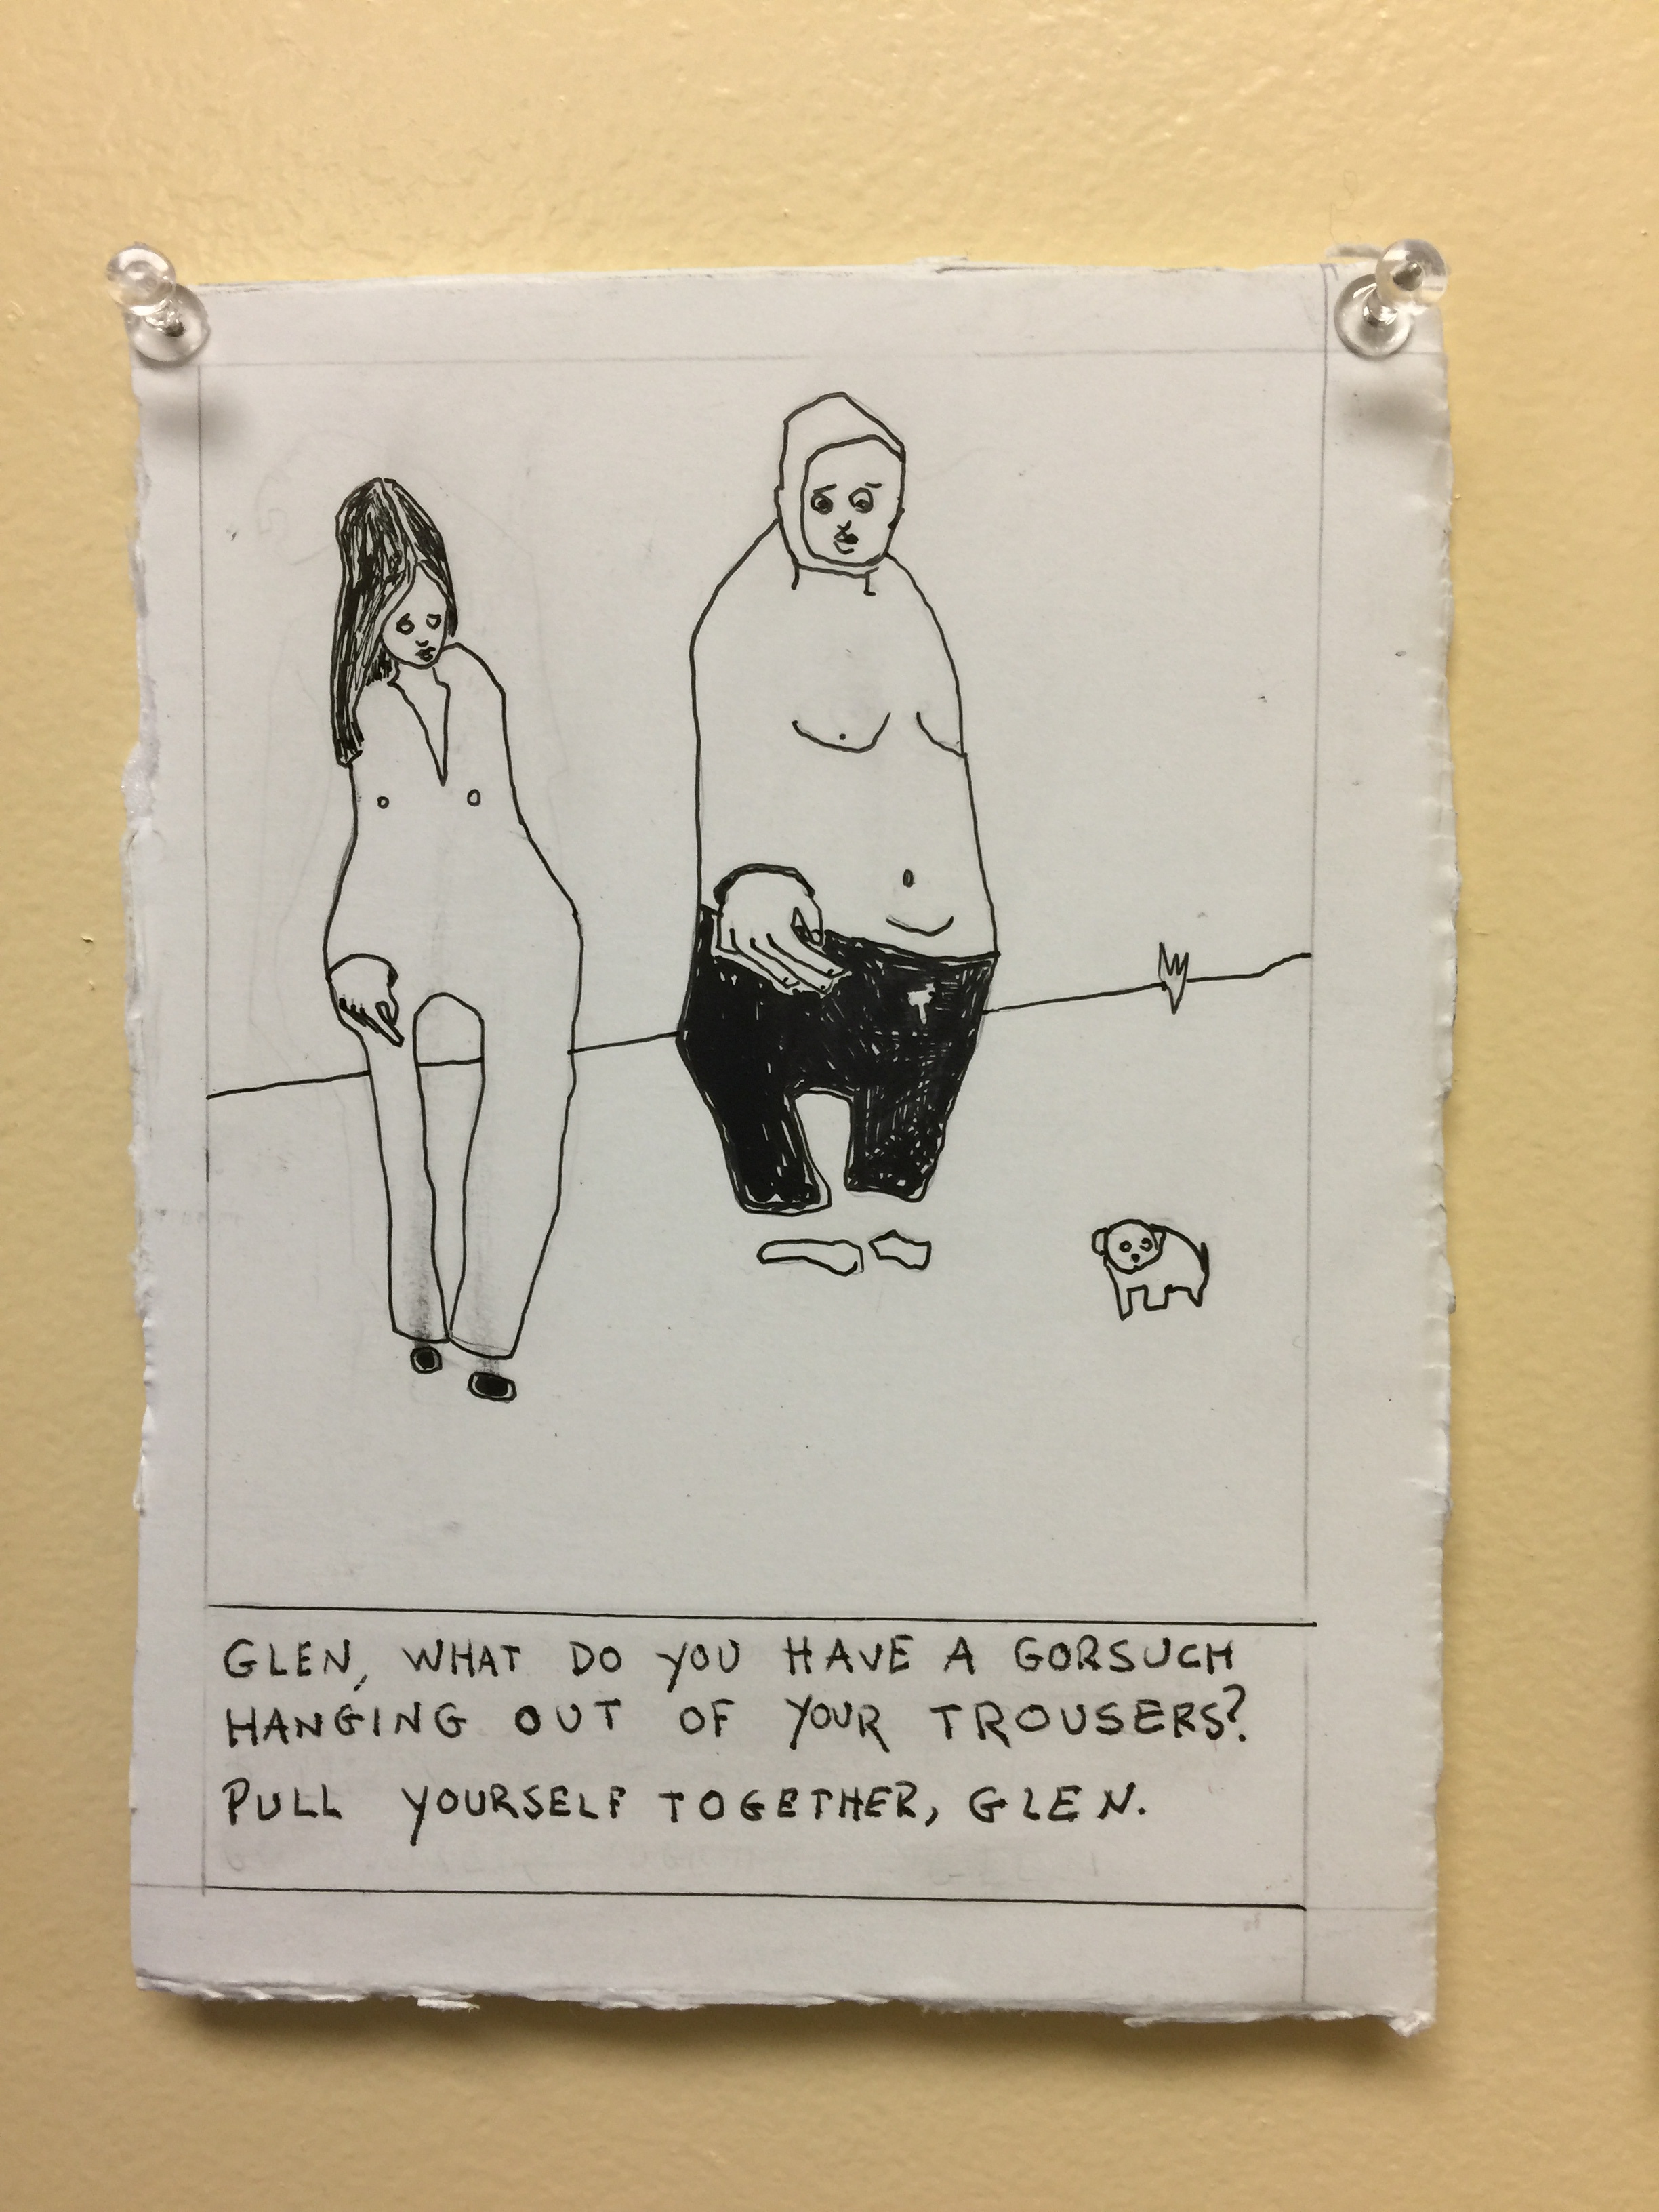 GLEN, WHAT DO YOU HAVE A GORSUCH
HANGING OUT OF YOUR TROUSERS?
PULL YOURSELF TOGETHER, GLEN.